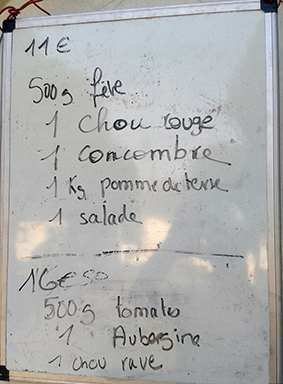 11€
500g fève
1 chou rouge
1 concombre
1 Kg pomme de terre
1 salade
16€50
500g tomates
1 Aubergine
1 chou rave